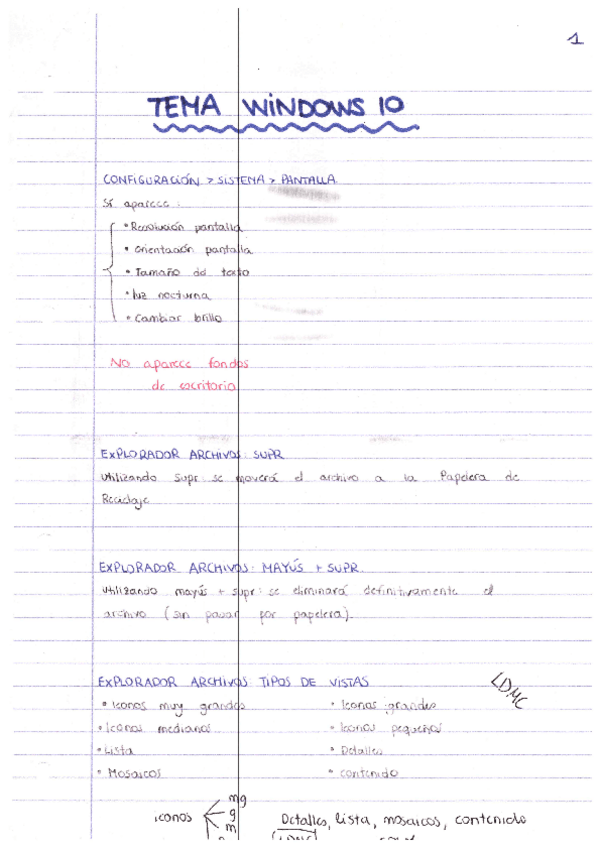 1
TEMA WINDOWS 10
CONFIGURACIÓN > SISTEMA > PANTALLA
Sí aparece:
• Resolución pantalla
• Orientación pantalla
• Tamaño del texto
• luz nocturna
• Cambiar brillo
No aparece fondos
de escritorio
EXPLORADOR ARCHIVOS: SUPR
Utilizando Supr: se moverá el archivo a la Papelera de
Reciclaje
EXPLORADOR ARCHIVOS: MAYÚS + SUPR.
Utilizando mayús + supr: se eliminará definitivamente el
archivo (sin pasar por papelera).
EXPLORADOR ARCHIVOS TIPOS DE VISTAS
LDMC
• Iconos muy grandes • Iconos grandes
• Iconos medianos • Iconos pequeños
• Lista • Detalles
• Mosaicos • contenido
mg
iconos g Detalles, lista, mosaicos, contenido
m